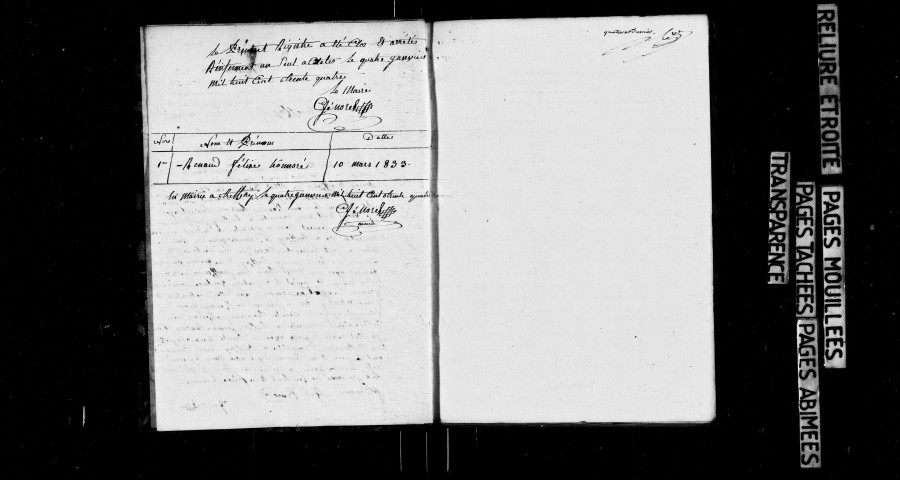 Le Présent Registre a été Clos et arrêtés
le quatre janvier
mil huit Cent trente quatre
Le Maire
Morel
Nos
Noms et Prénoms
Dattes
1er
Renaud féline honnoré
10 mars 1833
En Mairie a le quatre janvier mil huit Cent trente quatre
Morel
maire
RELIURE ETROITE
PAGES MOUILLÉES
PAGES TACHÉES
PAGES ABIMÉES
TRANSPARENCE